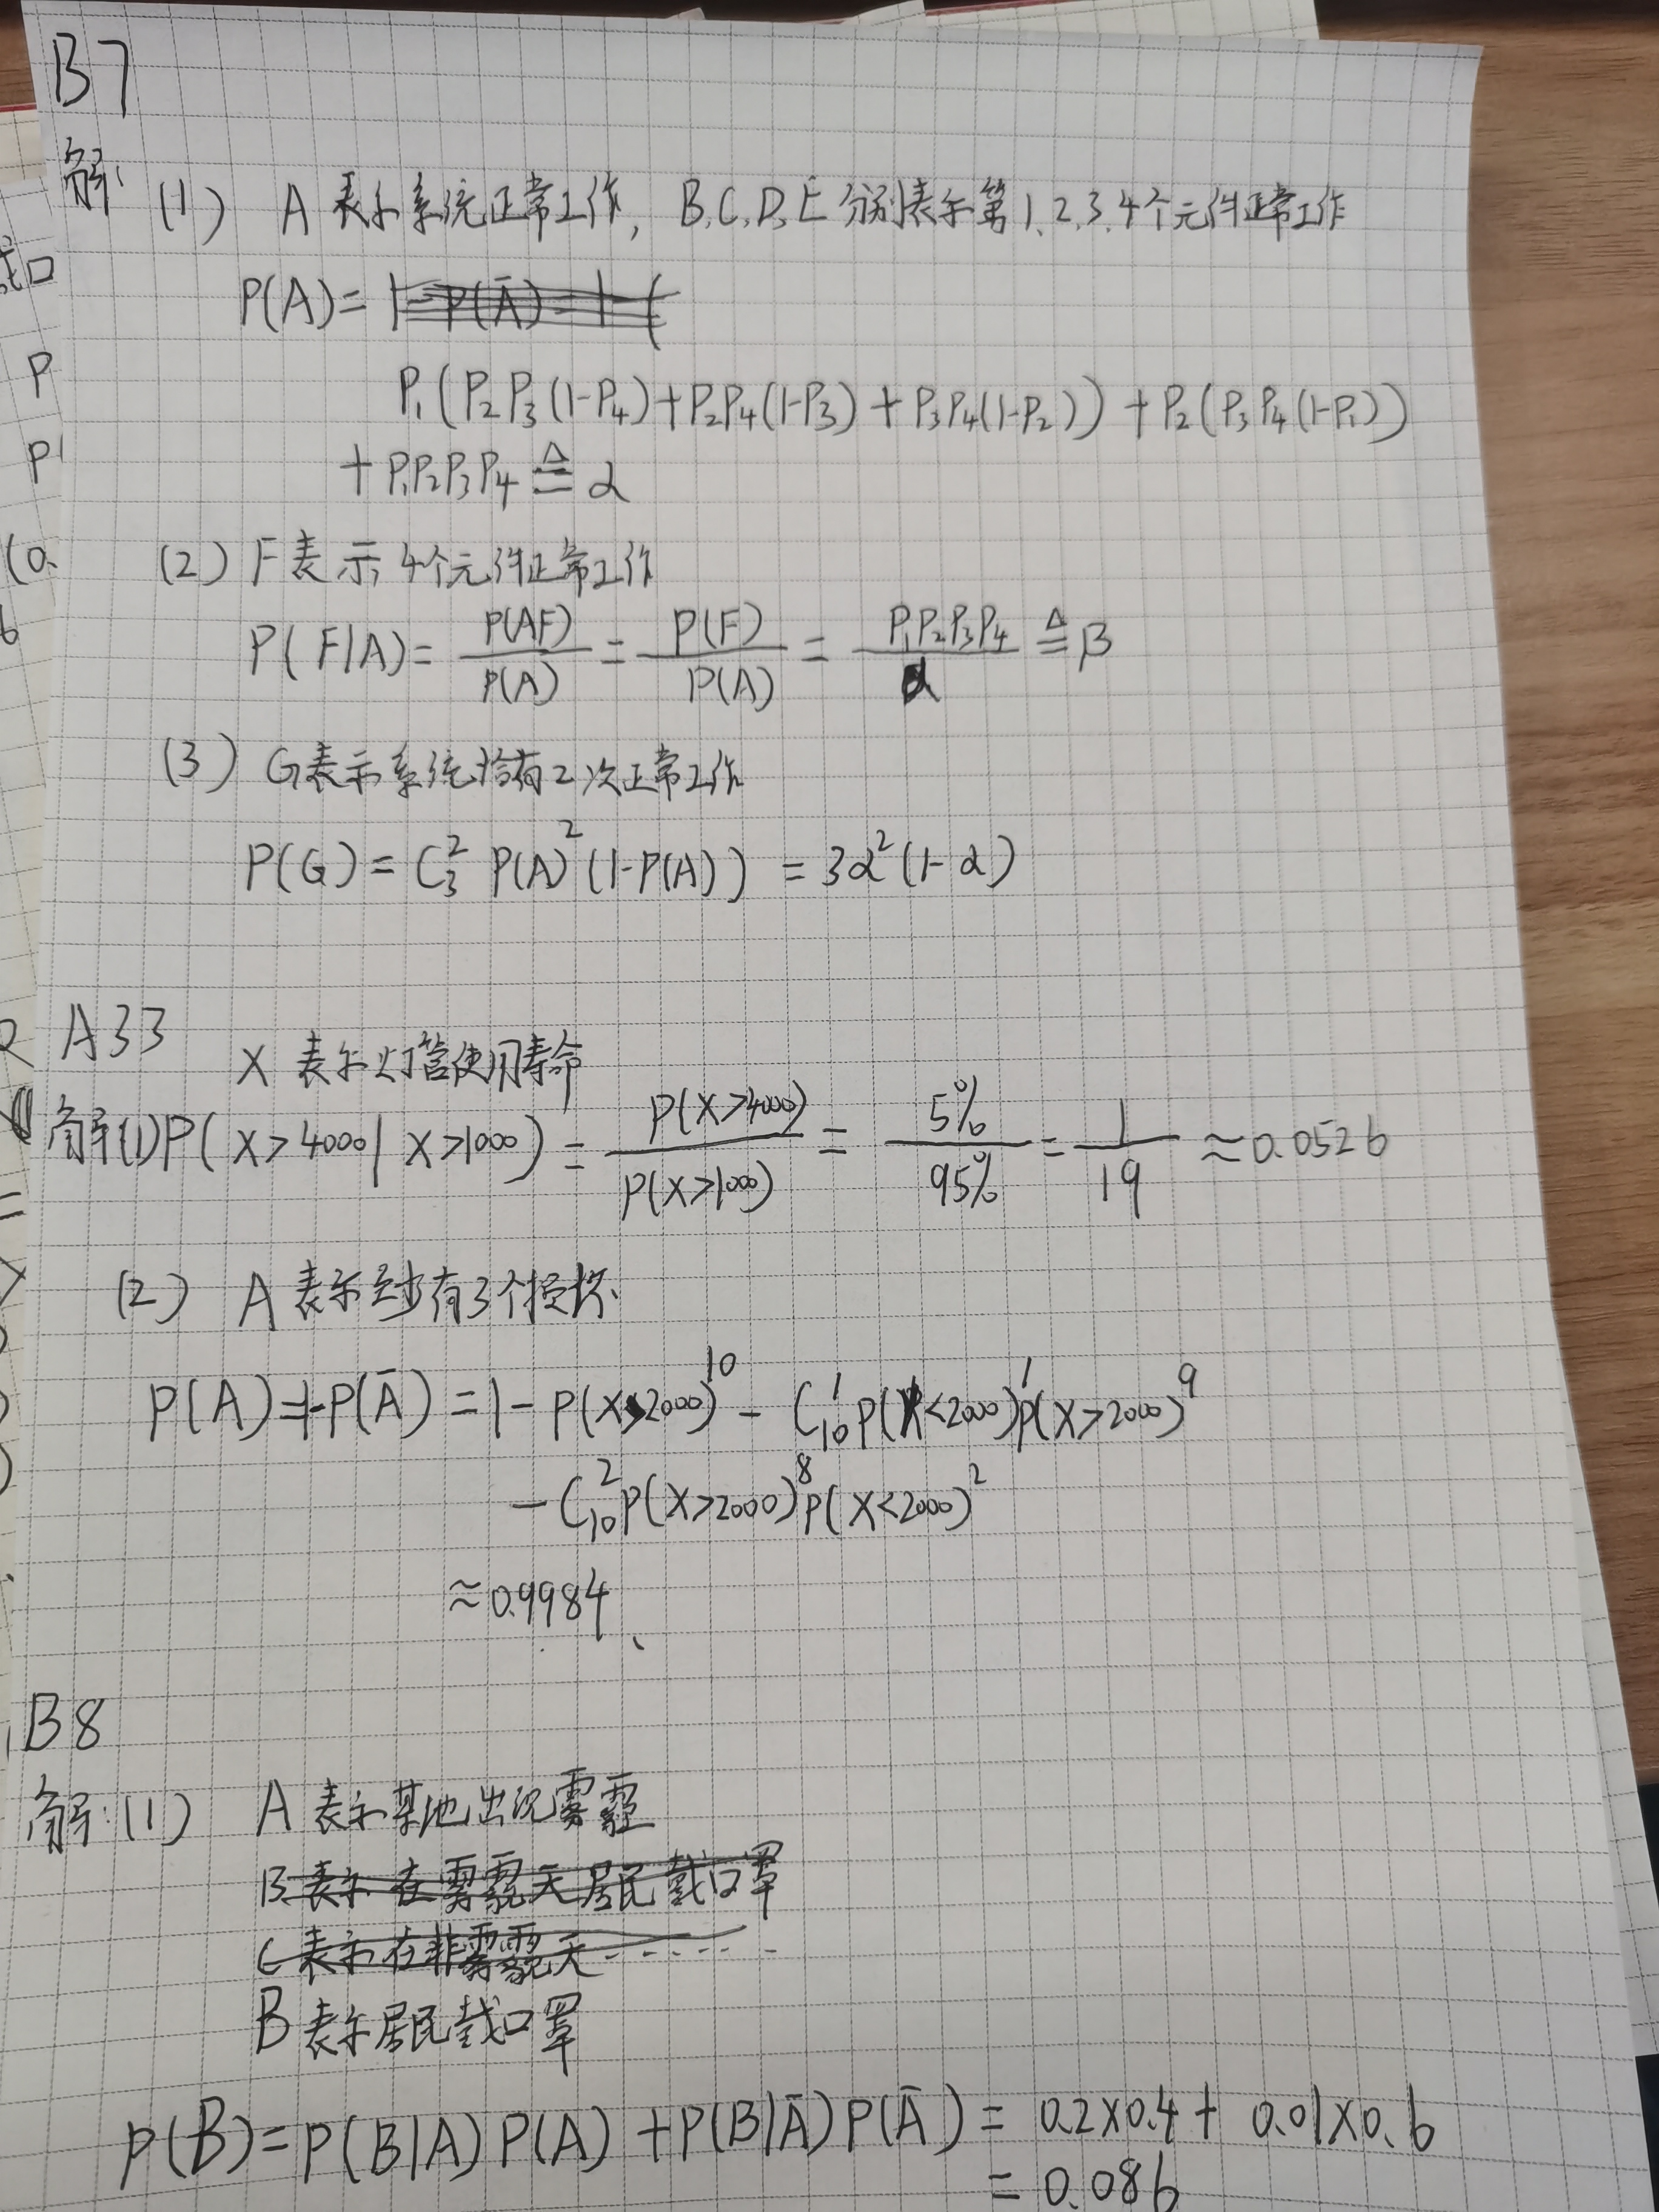 B7
解: (1) A 表示系统正常工作, B,C,D,E 分别表示第1、2、3、4个元件正常工作
P(A)= 1-P(Ā)=1-(
P₁(P₂P₃(1-P₄)+P₂P₄(1-P₃)+P₃P₄(1-P₂))+P₂(P₃P₄(1-P₁))
+P₁P₂P₃P₄ ≜ α
(2) F表示4个元件正常工作
P(F|A)= P(AF)/P(A) = P(F)/P(A) = P₁P₂P₃P₄/α ≜ β
(3) G表示系统恰有2次正常工作
P(G)= C₃² P(A)²(1-P(A)) = 3α²(1-α)
A33
X 表示灯管使用寿命
解(1)P(X>4000|X>1000)= P(X>4000)/P(X>1000) = 5%/95% = 1/19 ≈0.0526
(2) A 表示至少有3个损坏
P(A)=1-P(Ā)=1-P(X>2000)¹⁰-C₁₀¹P(X<2000)¹P(X>2000)⁹
-C₁₀²P(X>2000)⁸P(X<2000)²
≈0.9984
B8
解:(1) A 表示某地出现雾霾
B表示在雾霾天居民戴口罩
C表示在非雾霾天------
B表示居民戴口罩
P(B)=P(B|A)P(A)+P(B|Ā)P(Ā)= 0.2×0.4+ 0.01×0.6
= 0.086